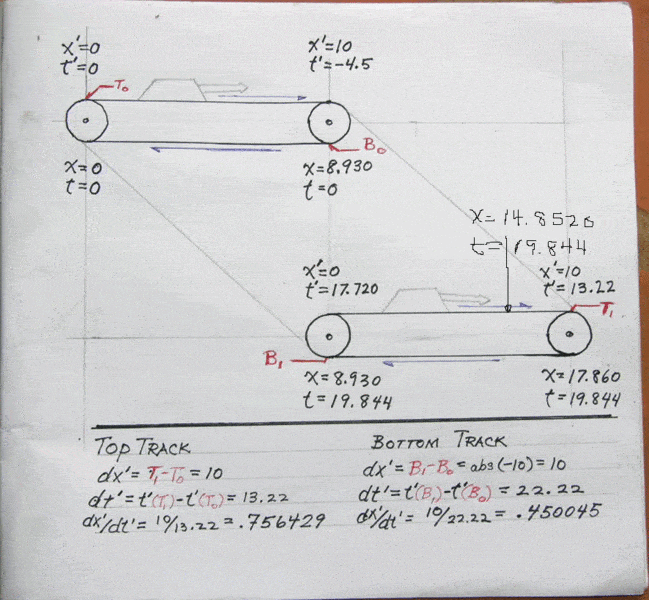 x'=0
t'=0
x'=10
t'=-4.5
T₀
B₀
x=0
t=0
x=8.930
t=0
x=14.8520
t=19.844
x'=0
t'=17.720
x'=10
t'=13.22
T₁
B₁
x=8.930
t=19.844
x=17.860
t=19.844
TOP TRACK
dx'= T₁-T₀ = 10
dt'= t'(T₁)-t'(T₀) = 13.22
dx'/dt'= 10/13.22 = .756429
BOTTOM TRACK
dx'= B₁-B₀ = abs(-10) = 10
dt'= t'(B₁)-t'(B₀) = 22.22
dx'/dt'= 10/22.22 = .450045